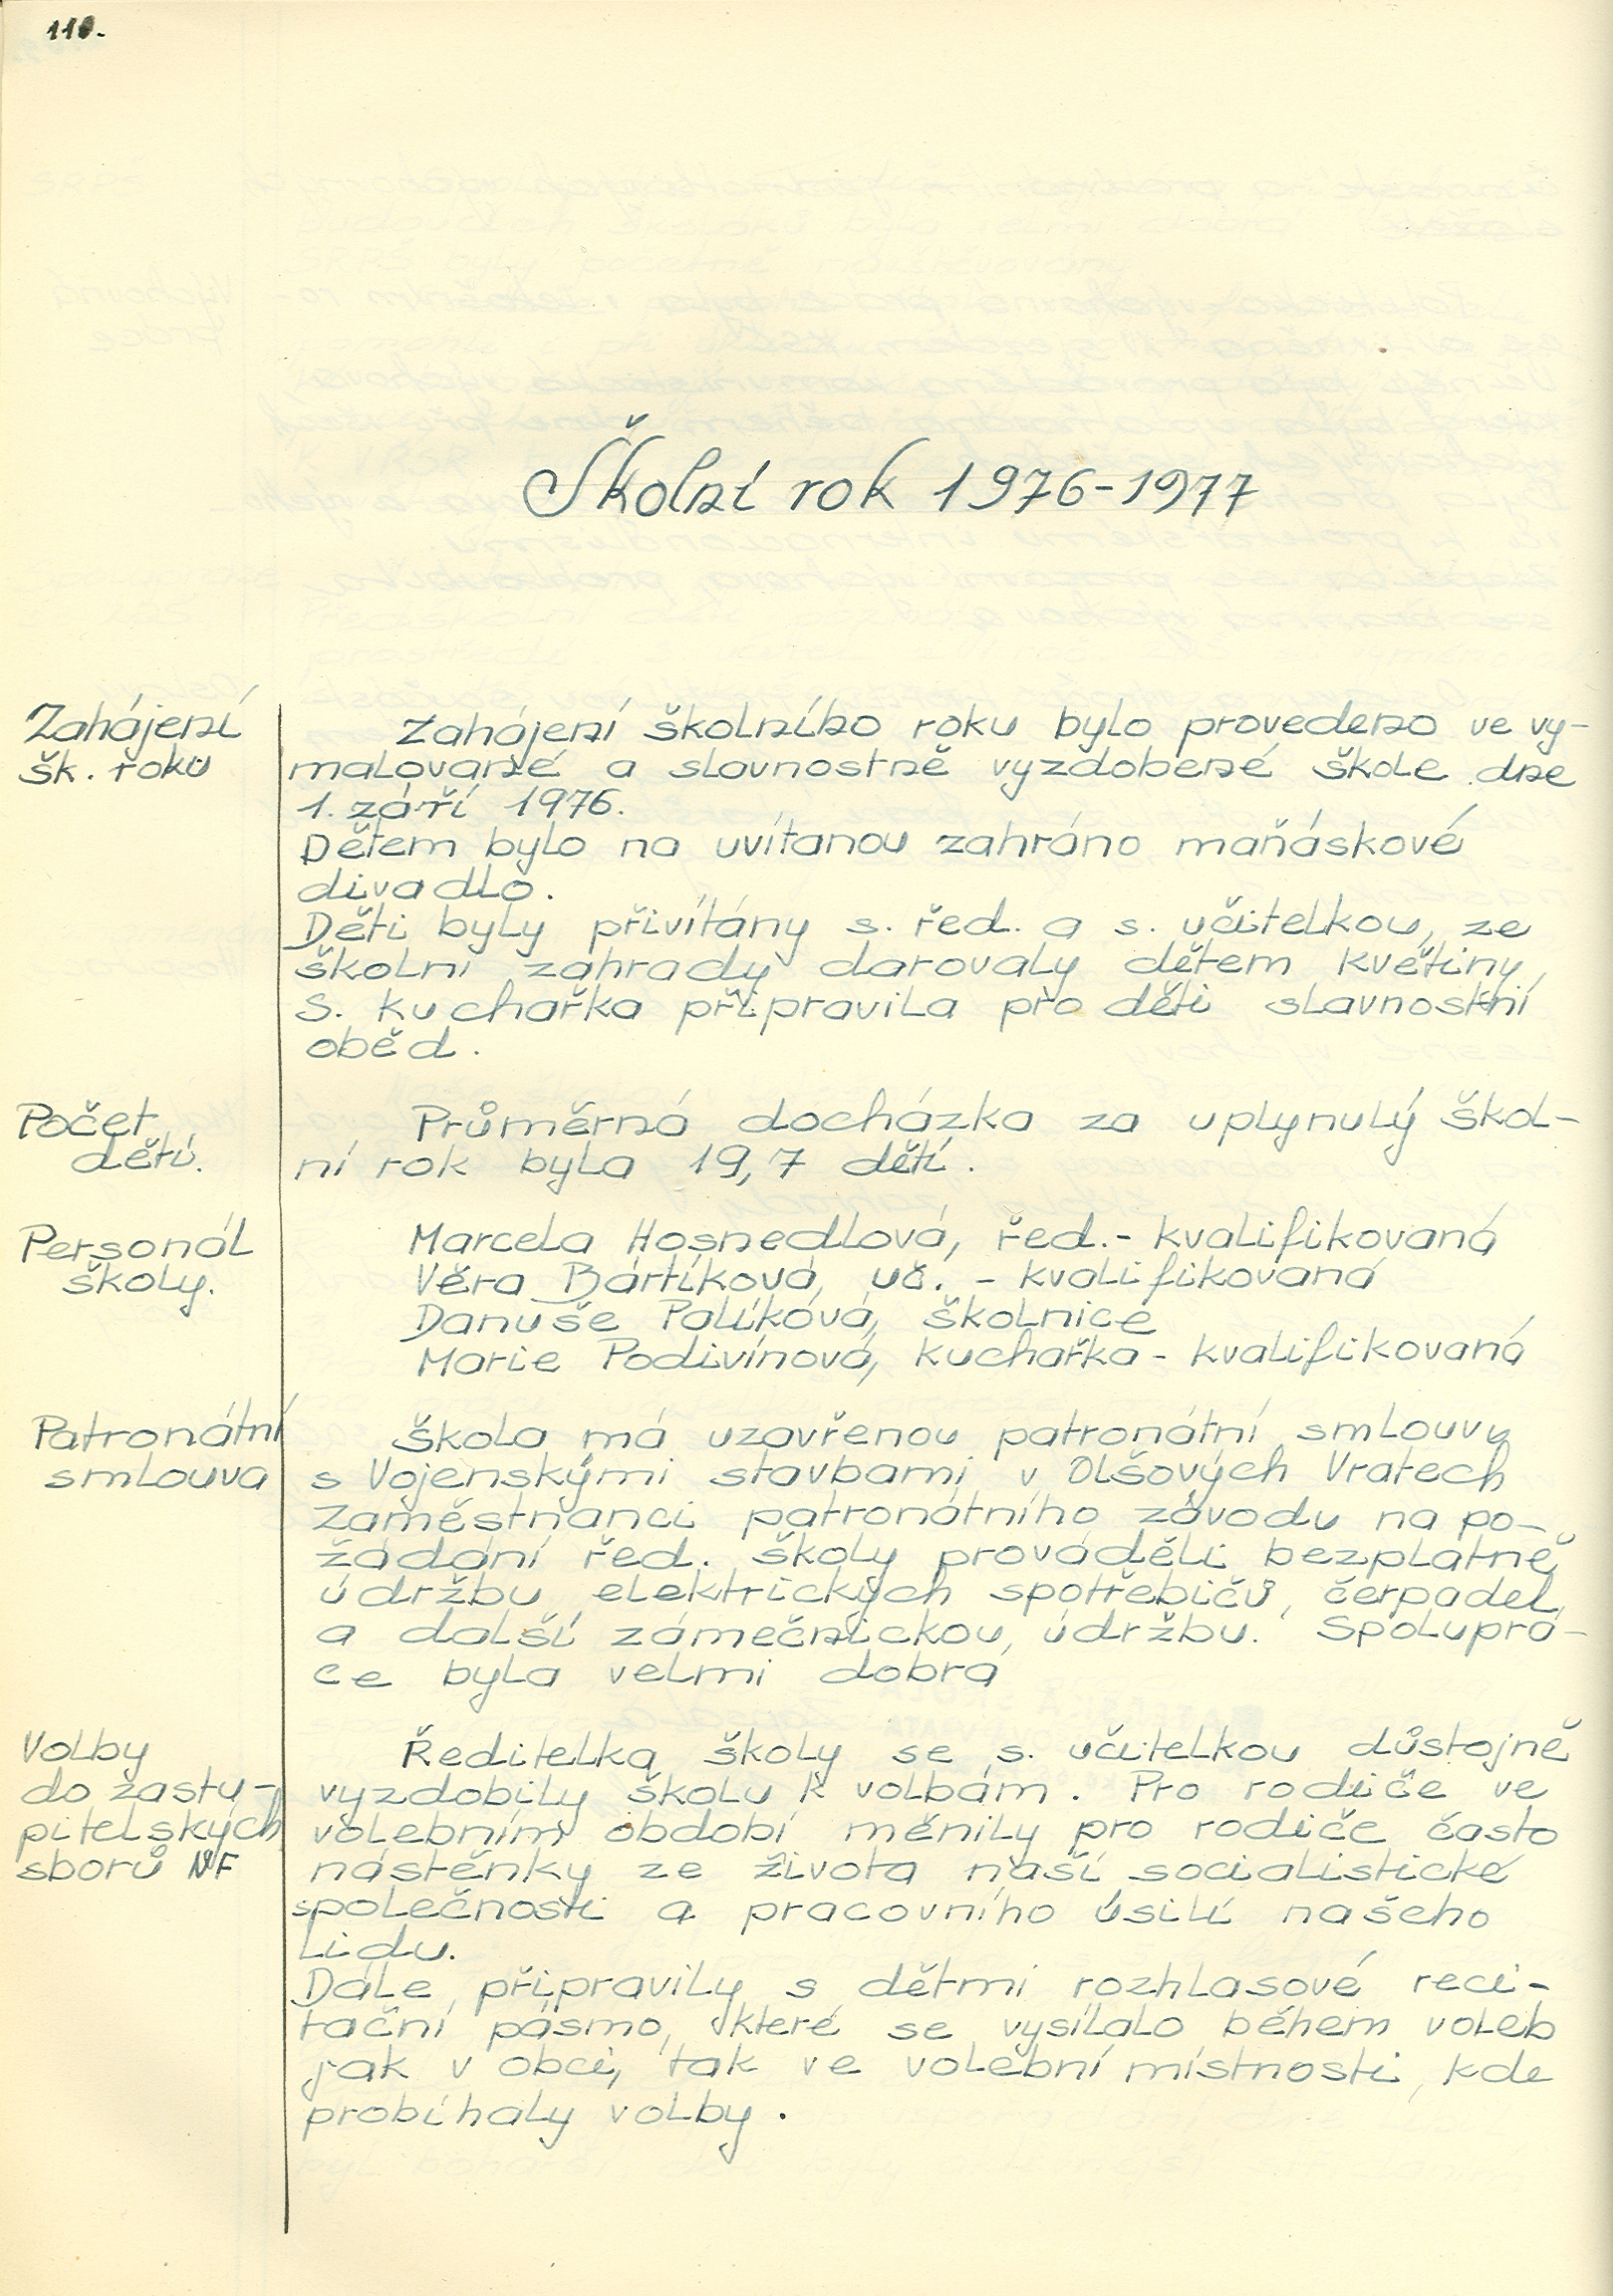 110.
Školní rok 1976-1977
Zahájení
šk. roku
Zahájení školního roku bylo provedeno ve vy-
malované a slavnostně vyzdobené škole dne
1. září 1976.
Dětem bylo na uvítanou zahráno maňáskové
divadlo.
Děti byly přivítány s. řed. a s. učitelkou, ze
školní zahrady darovaly dětem květiny,
s. kuchařka připravila pro děti slavnostní
oběd.
Počet
dětí.
Průměrná docházka za uplynulý škol-
ní rok byla 19,7 dětí.
Personál
školy.
Marcela Hosnedlová, řed.- kvalifikovaná
Věra Bártíková, uč. - kvalifikovaná
Danuše Palíková, školnice
Marie Podivínová, kuchařka - kvalifikovaná
Patronátní
smlouva
Škola má uzavřenou patronátní smlouvu
s Vojenskými stavbami v Olšových Vratech
Zaměstnanci patronátního závodu na po-
žádání řed. školy prováděli bezplatně
údržbu elektrických spotřebičů, čerpadel
a další zámečnickou údržbu. Spoluprá-
ce byla velmi dobrá
Volby
do zastu-
pitelských
sborů NF
Ředitelka školy se s. učitelkou důstojně
vyzdobily školu k volbám. Pro rodiče ve
volebním období měnily pro rodiče často
nástěnky ze života naší socialistické
společnosti a pracovního úsilí našeho
lidu.
Dále připravily s dětmi rozhlasové reci-
tační pásmo, které se vysílalo během voleb
jak v obci, tak ve volební místnosti, kde
probíhaly volby.